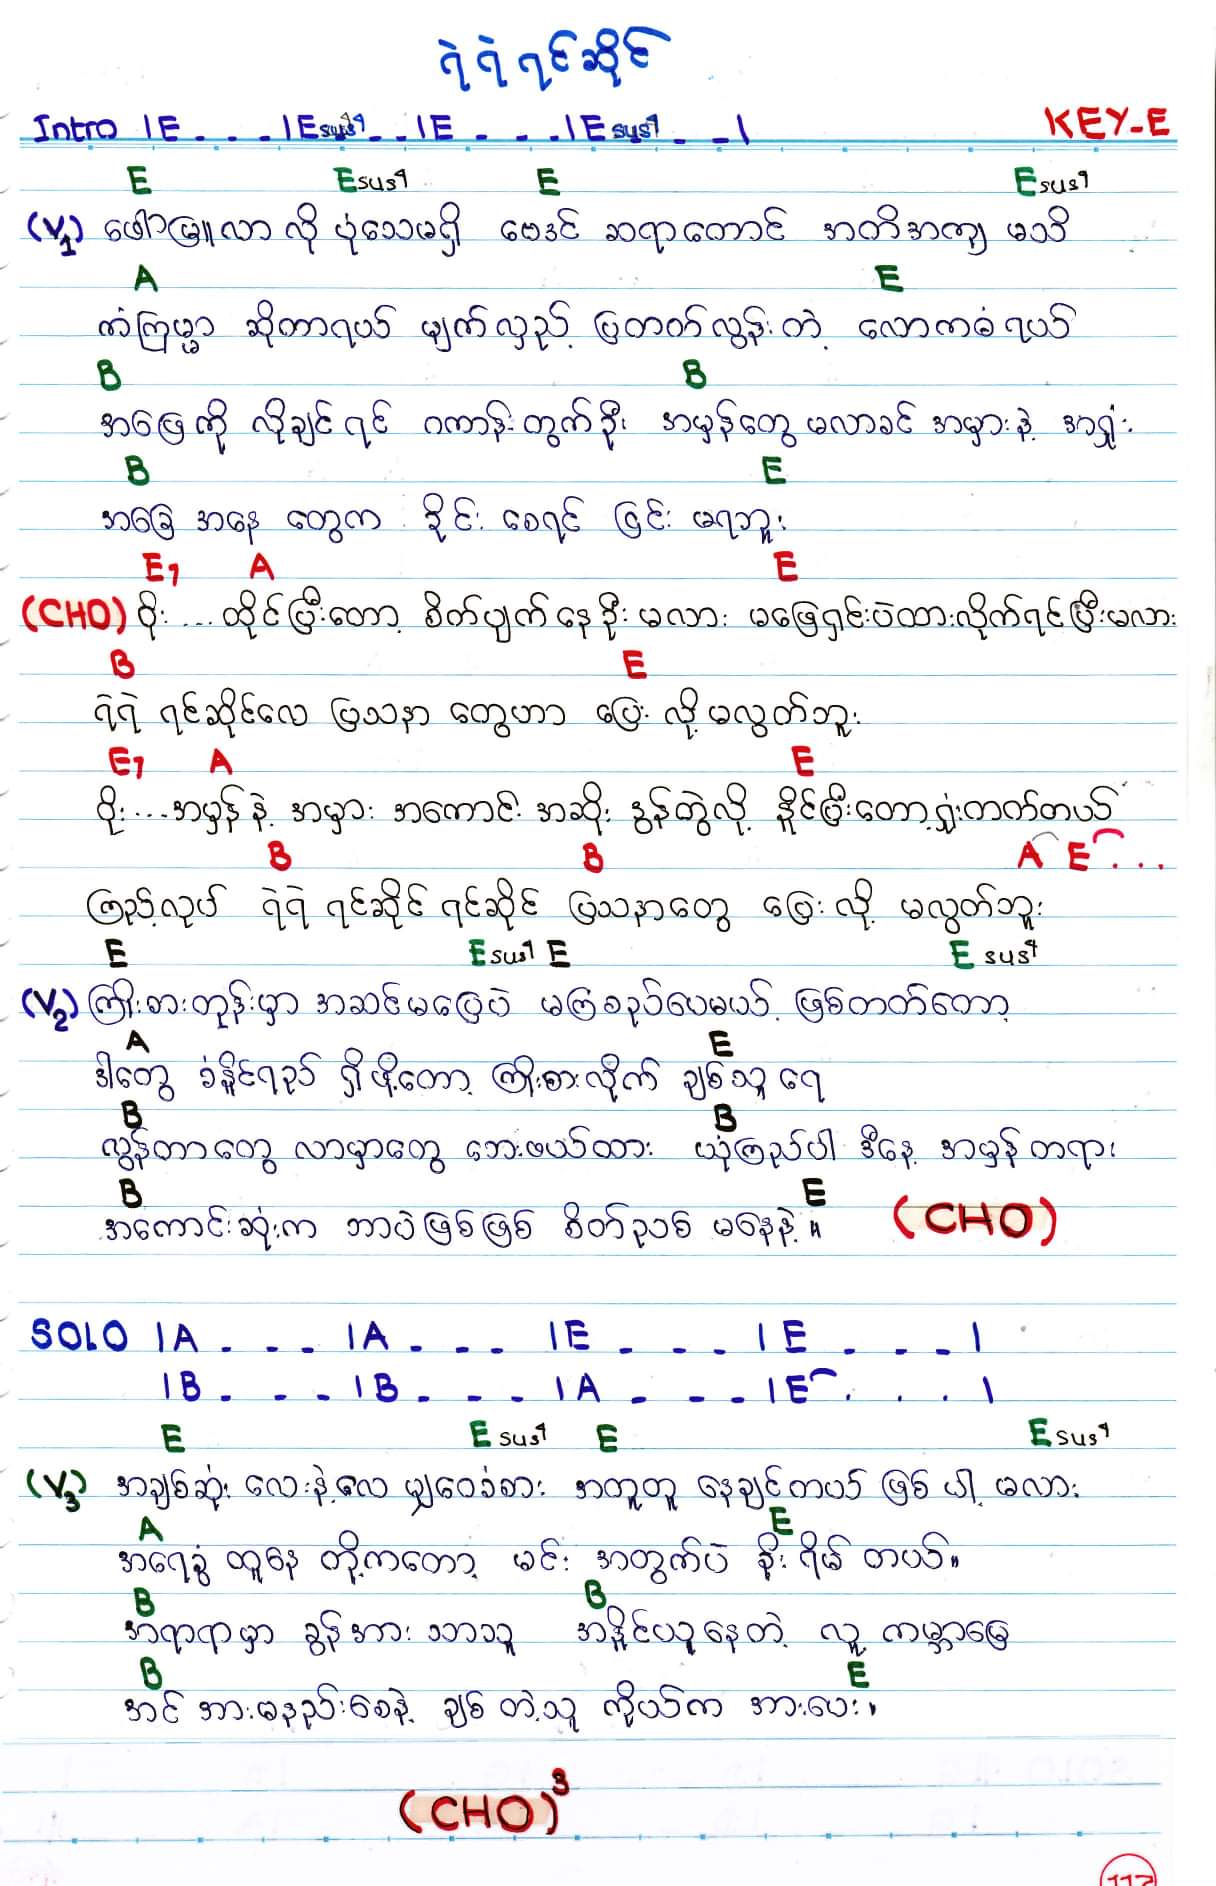 ရဲရဲရင်ဆိုင်
Intro |E . . . |Esus4 . . |E . . . |Esus4 . . |
KEY-E
E Esus4 E Esus4
(V1) ဖော်မြူလာ လို ပုံသေမရှိ ဗေဒင် ဆရာတောင် အတိအကျ မသိ
A E
ကံကြမ္မာ ဆိုတာရယ် မျက်လှည့် ပြတတ်လွန်းတဲ့ လောကဓံရယ်
B B
အဖြေကို လိုချင်ရင် ဂဏန်းတွက်ဦး အမှန်တွေ မလာခင် အမှားနဲ့ အရှုံး
B E
အခြေ အနေ တွေက ခိုင်း စေရင် ငြင်း မရဘူး
E7 A E
(CHO) ဝိုး ... ထိုင်ပြီးတော့ စိတ်ပျက်နေဦးမလား မဖြေရှင်းပဲထားလိုက်ရင်ပြီးမလား
B E
ရဲရဲ ရင်ဆိုင်လေ ပြသနာ တွေဟာ ပြေး လို့ မလွတ်ဘူး
E7 A E
ဝိုး ... အမှန် နဲ့ အမှား အကောင်း အဆိုး ဒွန်တွဲလို့ နိုင်ပြီးတော့ရှုံးတက်တယ်
B B A E ...
ကြည့်လုပ် ရဲရဲ ရင်ဆိုင် ရင်ဆိုင် ပြသနာတွေ ပြေး လို့ မလွတ်ဘူး
E Esus4 E Esus4
(V2) ကြိုးစားတုန်းမှာ အဆင်မပြေပဲ မကြံစည်ပေမယ့် ဖြစ်တတ်တော့
A E
ဒါတွေ ခံနိုင်ရည် ရှိဖို့တော့ ကြိုးစားလိုက် ချစ်သူ ရေ
B B
လွန်တာတွေ လာမှာတွေ ဘေးဖယ်ထား ယုံကြည်ပါ ဒီနေ့ အမှန်တရား
B E
အကောင်းဆုံးက ဘာပဲဖြစ်ဖြစ် စိတ်ညစ် မနေနဲ့ ။ (CHO)
SOLO |A . . . |A . . . |E . . . |E . . . |
|B . . . |B . . . |A . . . |E . . . |
E Esus4 E Esus4
(V3) အချစ်ဆုံး လေးနဲ့လေ မျှဝေခံစား အတူတူ နေချင်တယ် ဖြစ်ပါ့ မလား
A E
အရေခွံ ထူနေ တို့ကတော့ မင်း အတွက်ပဲ စိုး ရိမ် တယ်။
B B
အရာရာမှာ ခွန်အား ဘာသူ အနိုင်ယူနေတဲ့ လူ့ ကမ္ဘာမြေ
B E
အင် အားမနည်းစေနဲ့ ချစ် တဲ့သူ ကိုယ်က အားပေး။
(CHO)3
117